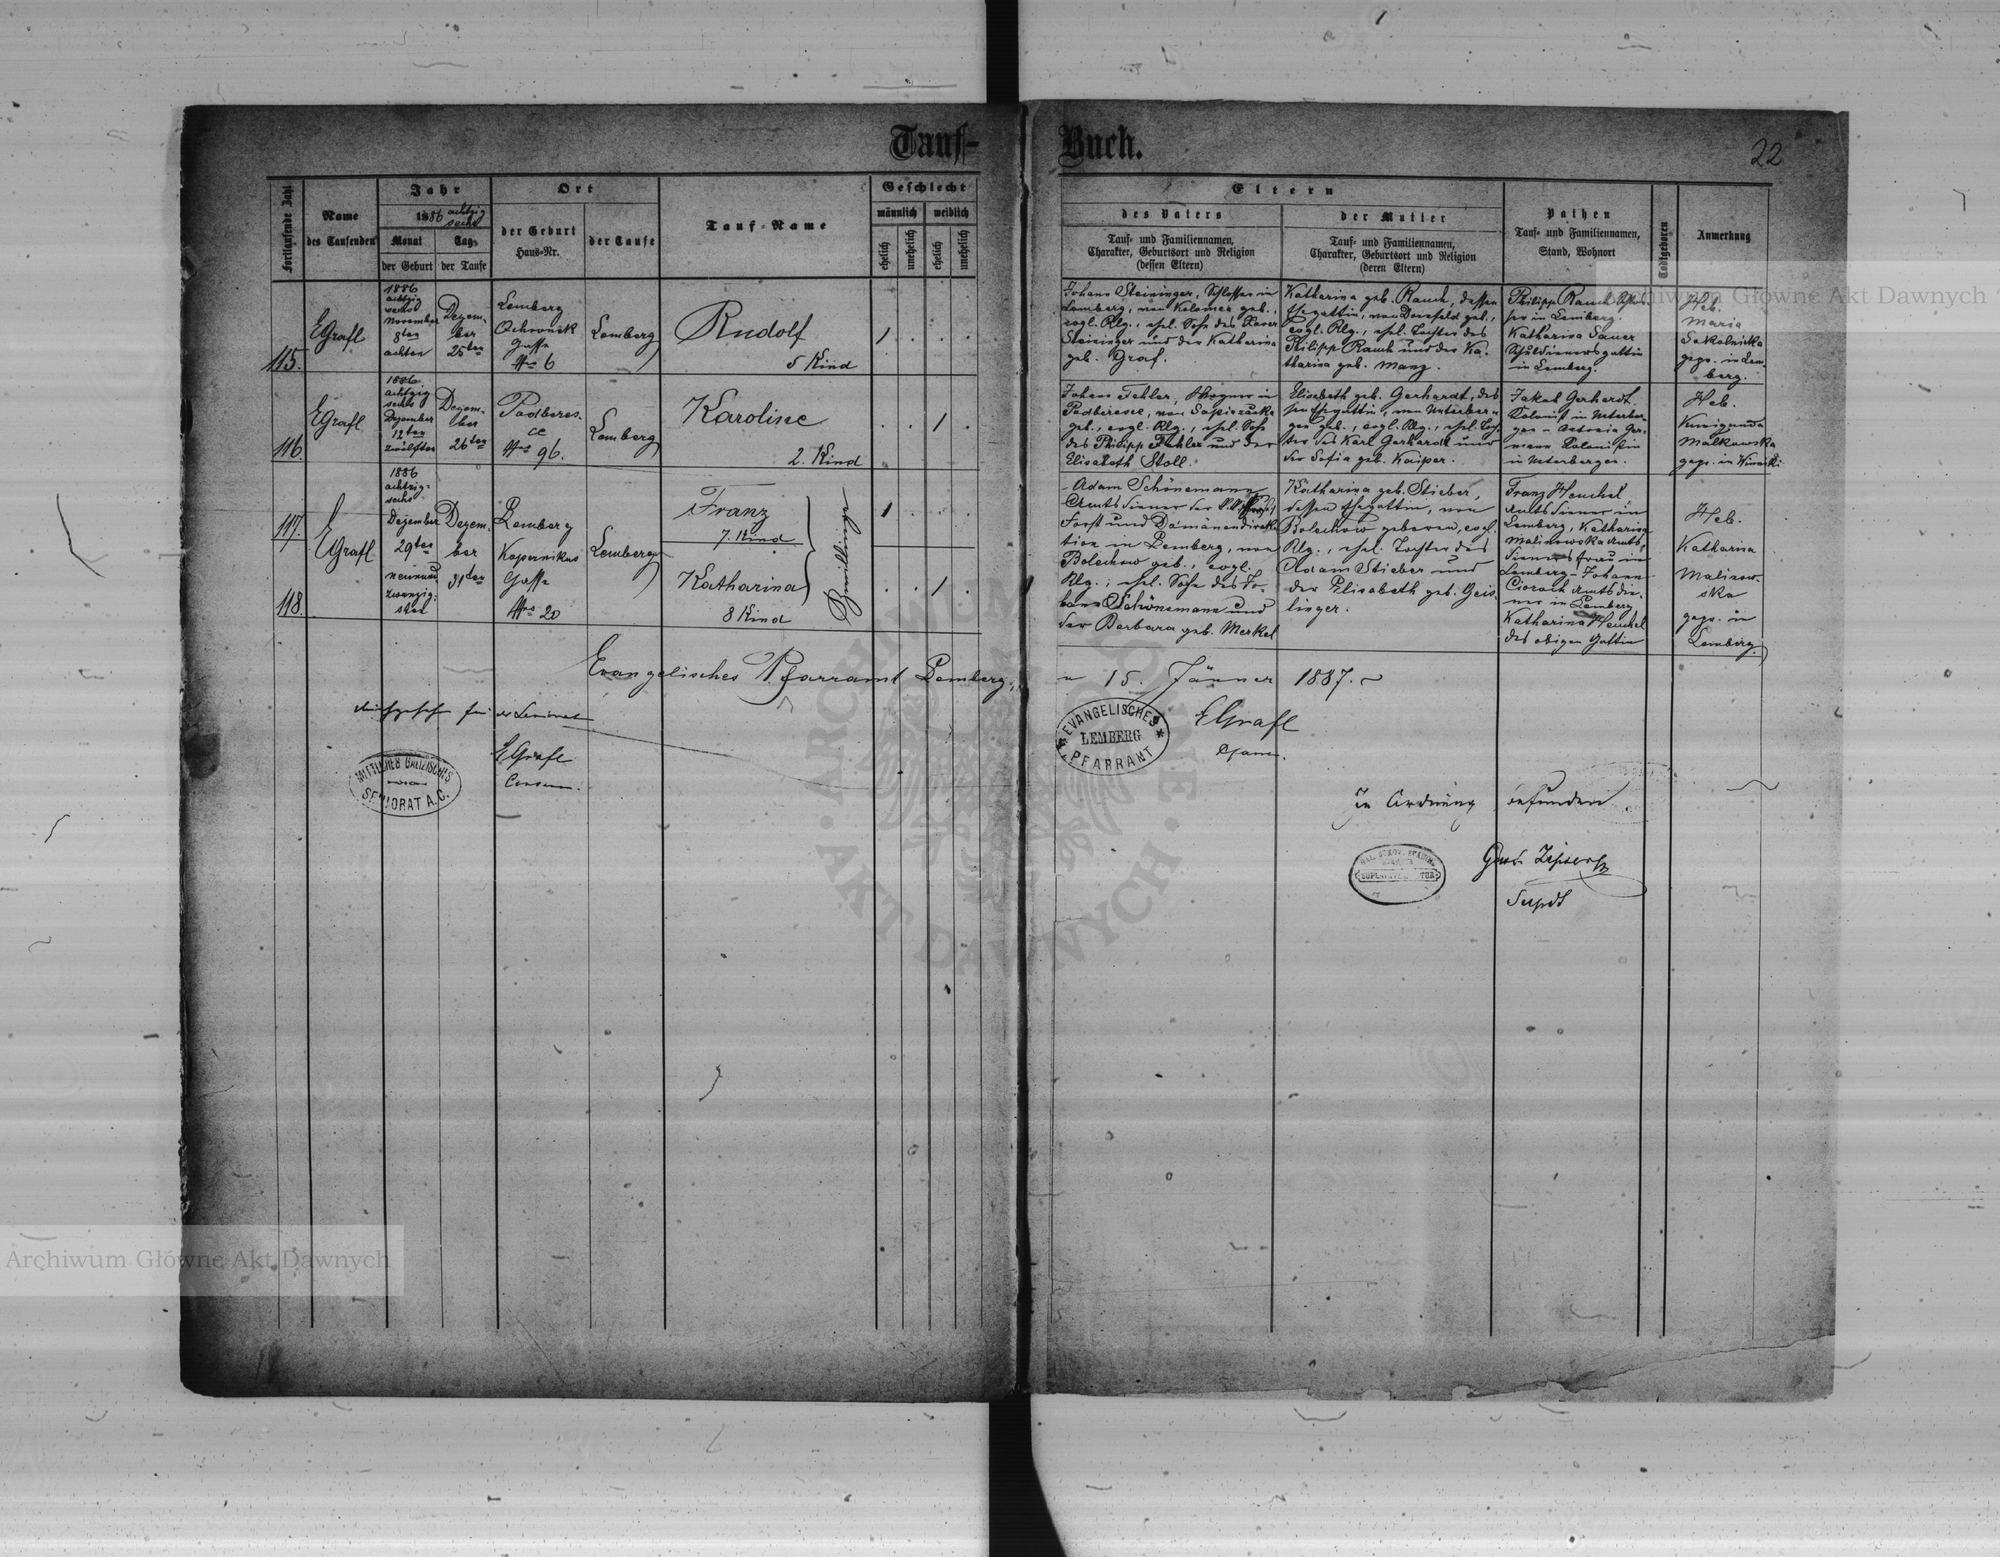 Tauf-Buch.
22
Fortlaufende Zahl
Name
des Taufenden
Jahr
1886 achtzig
sechs
Monat
Tag
der Geburt
der Taufe
Ort
der Geburt
Haus-Nr.
der Taufe
Tauf-Name
Geschlecht
männlich
weiblich
ehelich
unehelich
ehelich
unehelich
Eltern
des Vaters
Tauf- und Familiennamen,
Charakter, Geburtsort und Religion
(dessen Eltern)
der Mutter
Tauf- und Familiennamen,
Charakter, Geburtsort und Religion
(deren Eltern)
Pathen
Tauf- und Familiennamen,
Stand, Wohnort
Todtgeboren
Anmerkung
115.
EGrafl
1886
achtzig
sechs
November
8ten
achten
Dezem-
ber
25ten
Lemberg
Gasse
Nro 6
Lemberg
Rudolf
5 Kind
1
Johann Steininger, Schlosser in
Lemberg, von Kolomea geb.,
evgl. Rlg., ehel. Sohn des
Steininger und der Katharina
geb. Graf.
Katharina geb. Rauch, dessen
Ehegattin, von Dornfeld geb.,
evgl. Rlg., ehel. Tochter des
Philipp Rauch und der Ka-
tharina geb. Manz.
Philipp Rauch
in Lemberg.
Katharina Sauer
Schuldienersgattin
in Lemberg.
Heb.
Maria
Sokolnicka
gepr. in Lem-
berg.
116.
EGrafl
1886
achtzig
sechs
Dezember
12ten
zwölften
Dezem-
ber
26ten
Podberes-
ce
Nro 96.
Lemberg
Karoline
2. Kind
1
Johann Fehler, Wagner in
Podberesce, von
geb., evgl. Rlg., ehel. Sohn
des Philipp Fehler und der
Elisabeth Stoll.
Elisabeth geb. Gerhardt, des-
sen Ehegattin, von Unterber-
gen geb., evgl. Rlg., ehel. Toch-
ter des Karl Gerhardt und
der Sofia geb. Kaiper.
Jakob Gerhardt.
Kolonist in Unterber-
gen -
Kolonistin
in Unterbergen.
Heb.
Kunigunda
Malkowska
gepr. in Winniki
117.
118.
EGrafl
1886
achtzig-
sechs
Dezember
29ten
neunund
zwanzig-
sten
Dezem-
ber
31ten
Lemberg
Kopernikus
Gasse
Nro 20
Lemberg
Franz
7. Kind
Katharina
8 Kind
Zwillinge
1
1
Adam Schönemann
Amtsdiener der k.k.
Forst und Domänendirek-
tion in Lemberg, von
Bolechow geb., evgl.
Rlg.; ehel. Sohn des Jo-
hann Schönemann und
der Barbara geb. Merkel
Katharina geb. Stieber,
dessen Ehegattin, von
Bolechow geboren, evgl.
Rlg., ehel. Tochter des
Adam Stieber und
der Elisabeth geb. Geis-
linger.
Franz Heuchel,
Amtsdiener in
Lemberg, Katharina
Malinowska Amts-
dienersfrau in
Lemberg - Johann
Amtsdie-
ner in Lemberg
Katharina Heuchel
des obigen Gattin
Heb.
Katharina
Malinow-
ska
gepr. in
Lemberg
Evangelisches Pfarramt Lemberg, 15. Jänner 1887.
EVANGELISCHES
LEMBERG
PFARRAMT
EGrafl
Pfarrer.
EGrafl
MITTLERES GALIZISCHES
SENIORAT A.C.
In Ordnung befunden.
Supdt
Archiwum Główne Akt Dawnych
Archiwum Główne Akt Dawnych
ARCHIWUM GŁÓWNE · AKT DAWNYCH ·